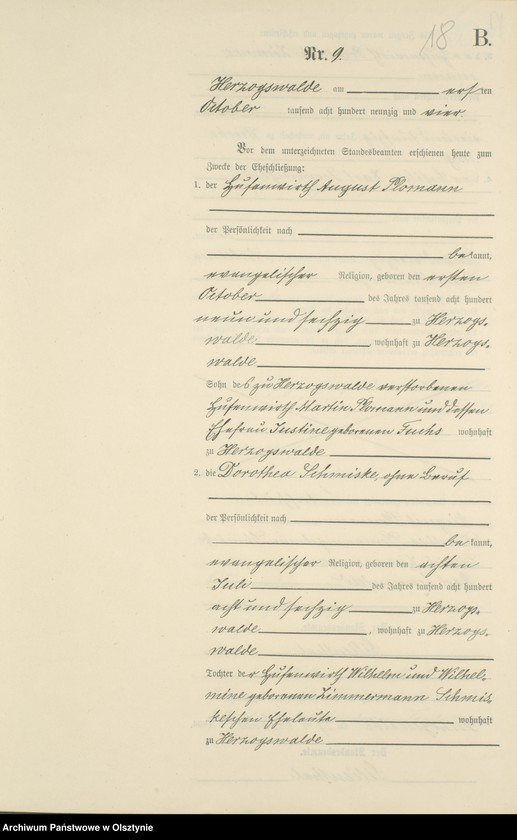 18 B.
Nr. 9.
Herzogswalde am ersten
October tausend acht hundert neunzig und vier
Vor dem unterzeichneten Standesbeamten erschienen heute zum
Zwecke der Eheschließung:
1. der Hufenwirth August Plomann
der Persönlichkeit nach
bekannt,
evangelischer Religion, geboren den ersten
October des Jahres tausend acht hundert
neun und sechzig zu Herzogs-
walde, wohnhaft zu Herzogs-
walde
Sohn des zu Herzogswalde verstorbenen
Hufenwirth Martin Plomann und dessen
Ehefrau Justine geborenen Fuchs wohnhaft
zu Herzogswalde
2. die Dorothea Schmiske, ohne Beruf
der Persönlichkeit nach
bekannt,
evangelischer Religion, geboren den achten
Juli des Jahres tausend acht hundert
acht und sechzig zu Herzogs-
walde, wohnhaft zu Herzogs-
walde
Tochter der Hufenwirth Wilhelm und Wilhel-
mine geborenen Zimmermann Schmis-
keschen Eheleute wohnhaft
zu Herzogswalde
Archiwum Państwowe w Olsztynie